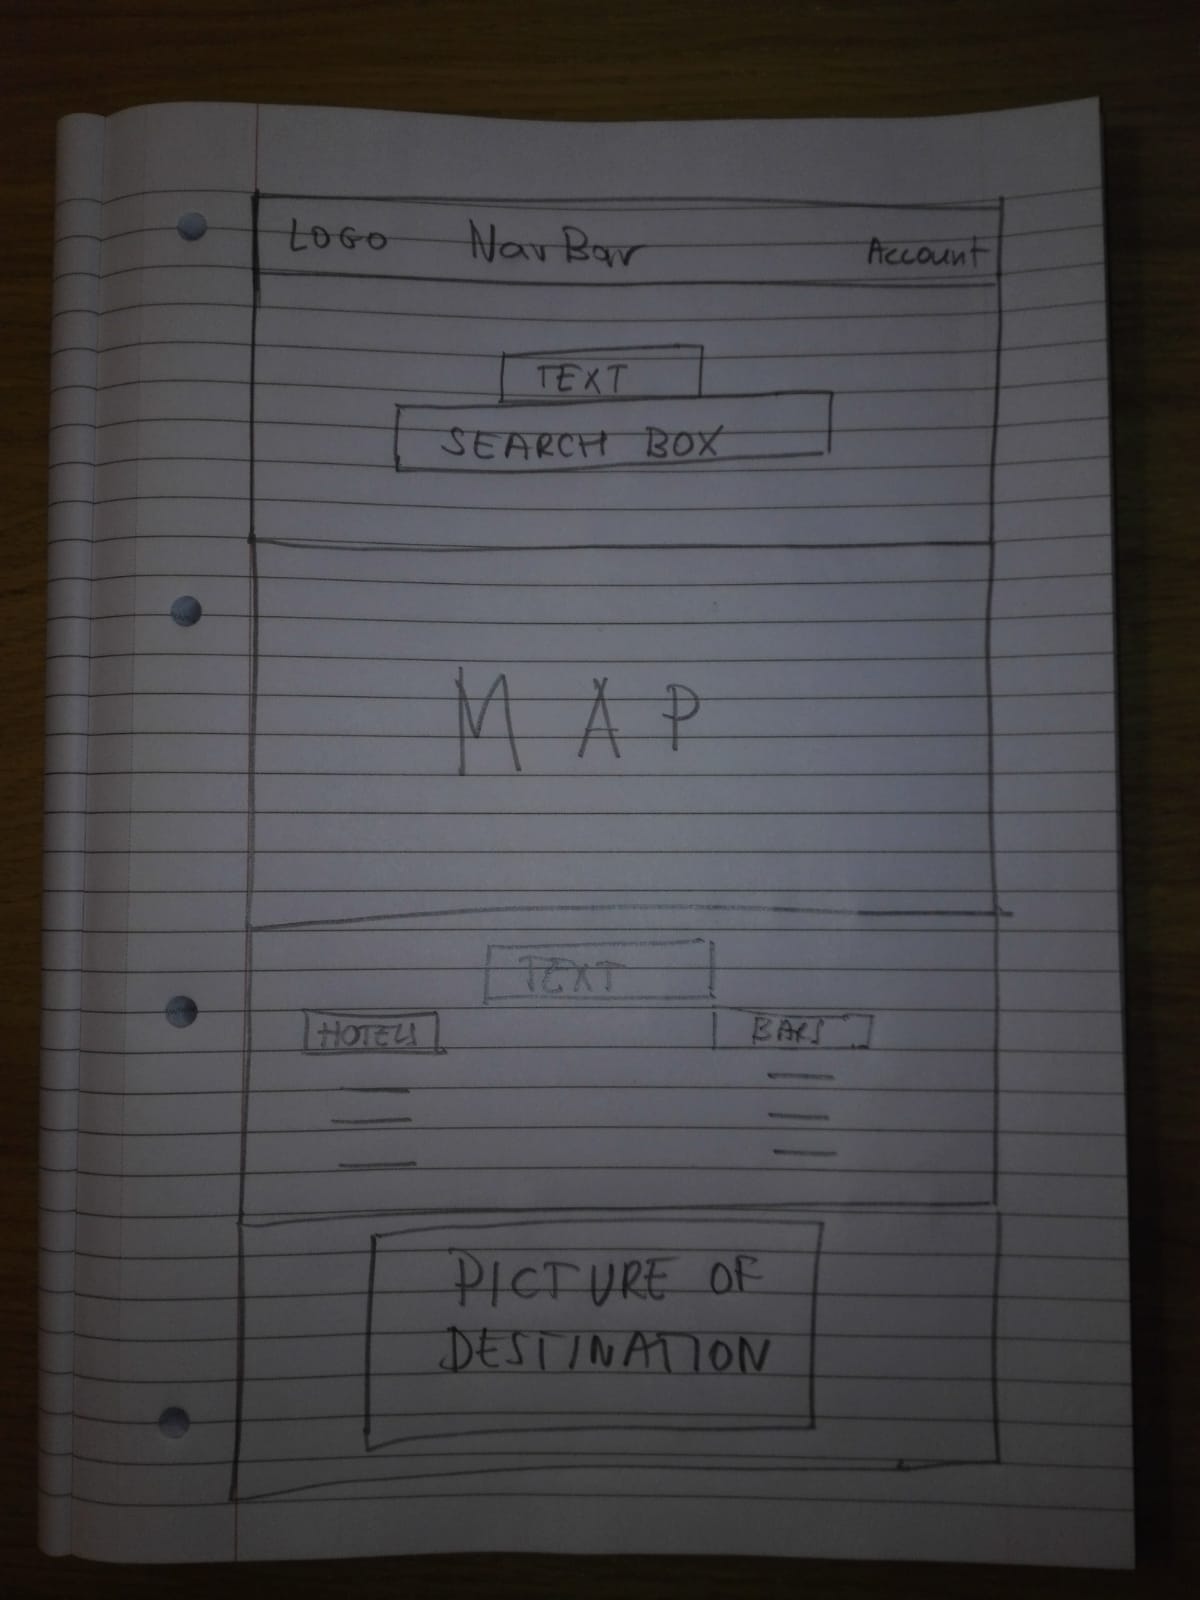 LOGO NavBar Account
TEXT
SEARCH BOX
MAP
TEXT
HOTELS BARS
PICTURE OF
DESTINATION